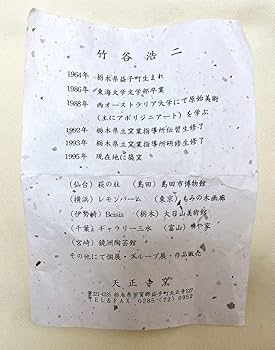 竹谷浩二
1964年 栃木県益子町生まれ
1986年 東海大学文学部卒業
1988年 西オーストラリア大学にて原始美術
(主にアボリジニアート)を学ぶ
1992年 栃木県立窯業指導所伝習生修了
1993年 栃木県立窯業指導所研修生修了
1995年 現在地に築窯
(仙台) 萩の杜 (島田) 島田市博物館
(横浜) レモンバーム (東京) もみの木画廊
(伊勢崎) Beisia (栃木) 大日山美術館
(千葉) ギャラリー三水 (富山)
(宮崎) 鏡洲陶芸館
その他にて個展・グループ展・作品販売
天正寺窯
〒321-4225 栃木県芳賀郡益子町大字益子127
TEL&FAX 0285-(72)0952